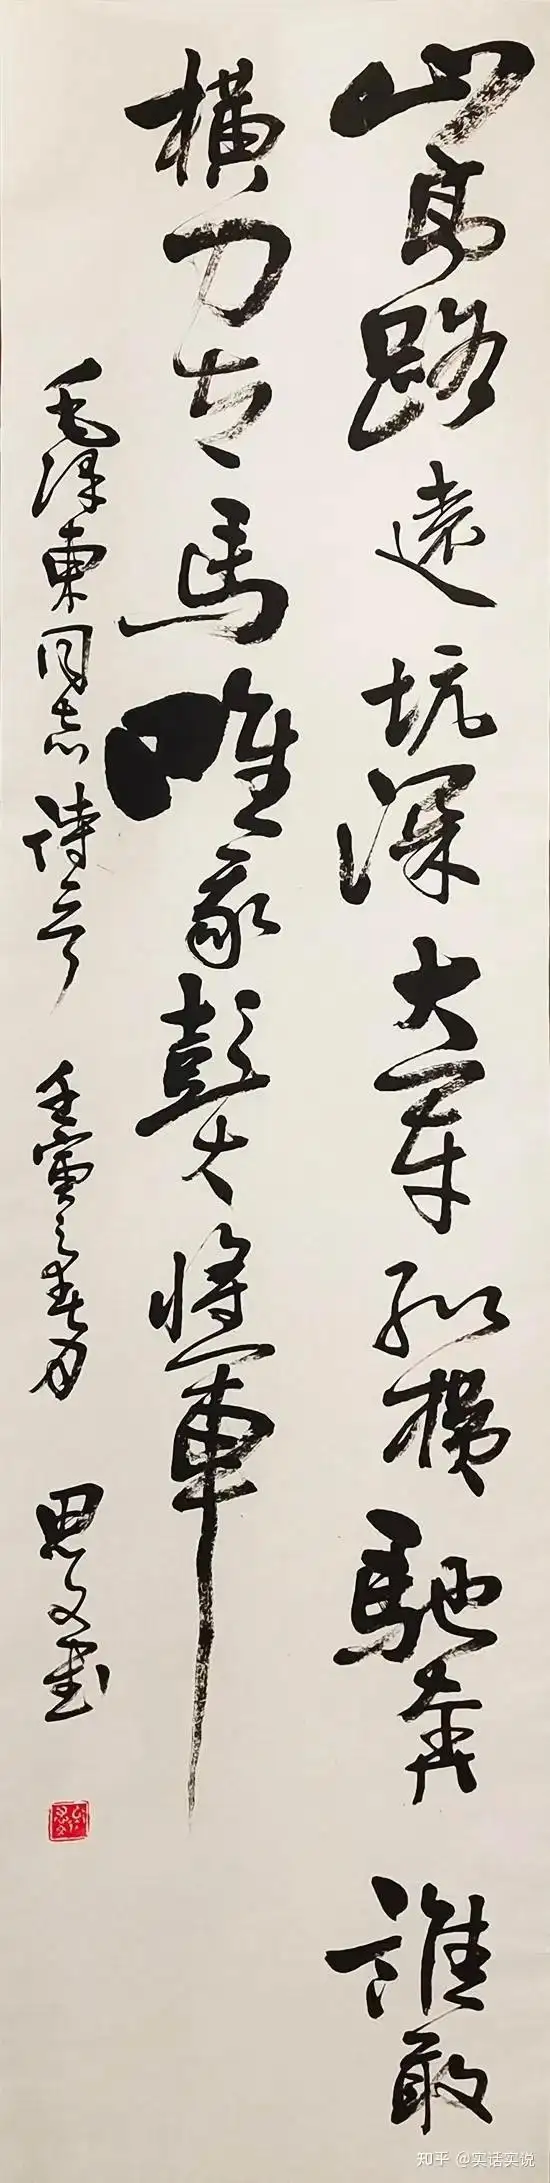 山高路遠坑深大军纵横馳奔誰敢
橫刀立馬唯我彭大将軍
毛泽東同志诗一首 壬寅之春月 思文書
知乎 @实话实说